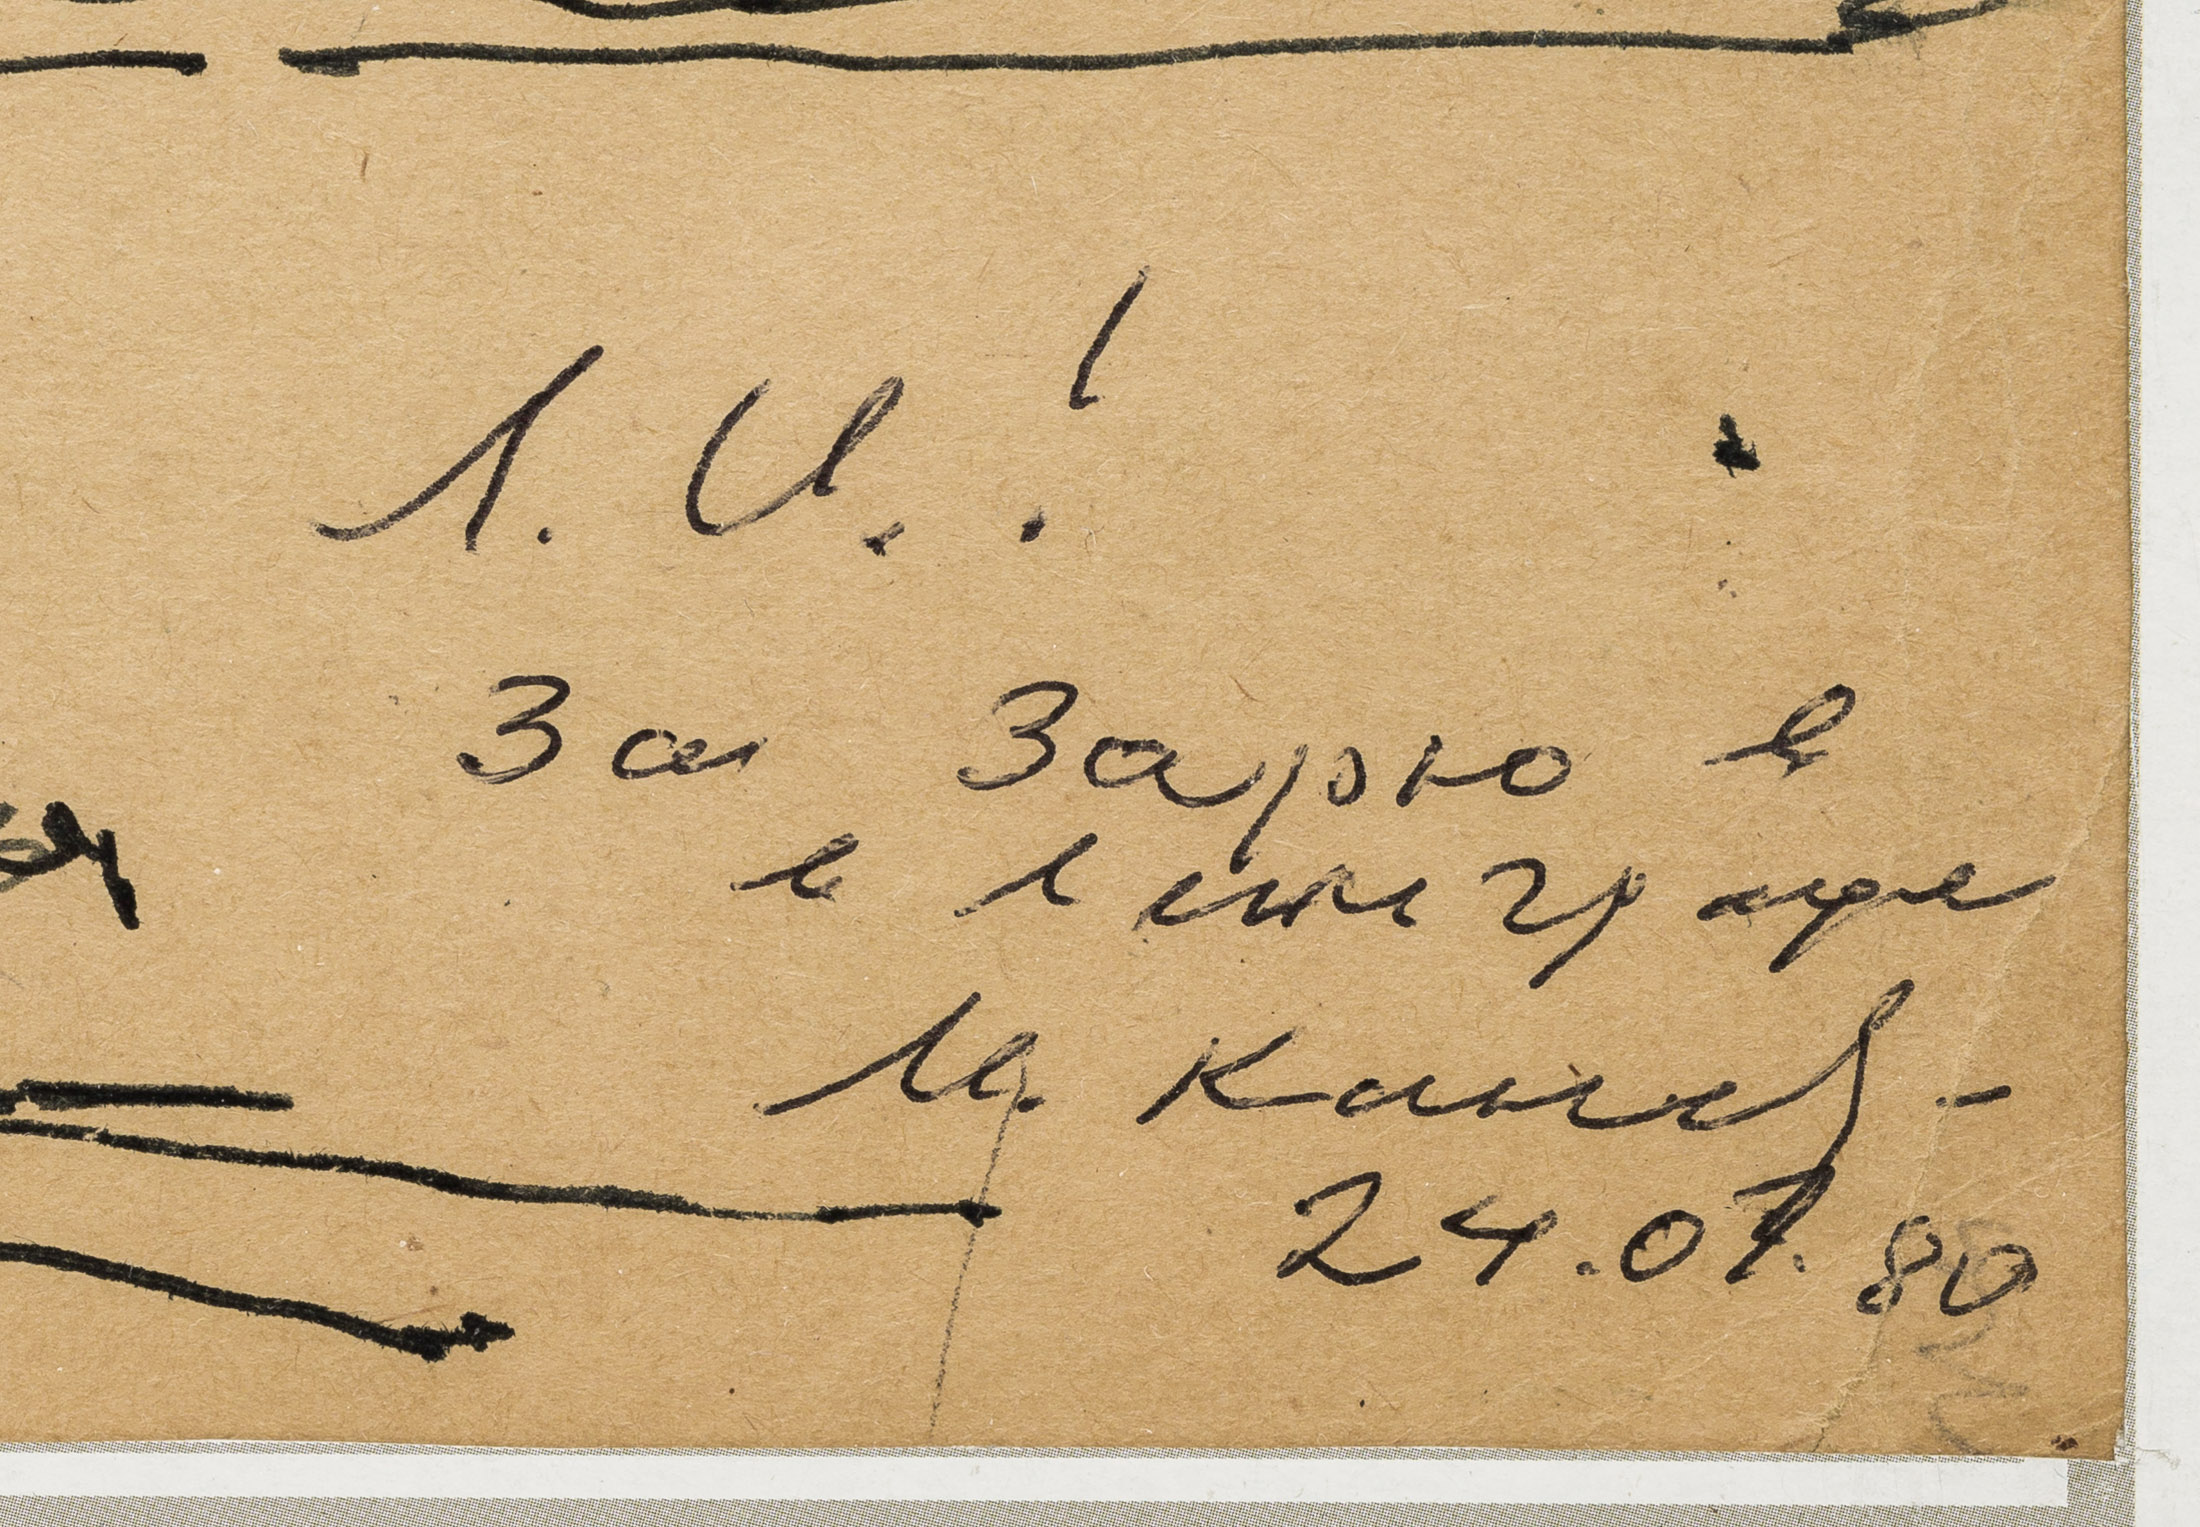 Л. И.!
За Зарю в
в Ленинграде
М. Канев-
24.07.80